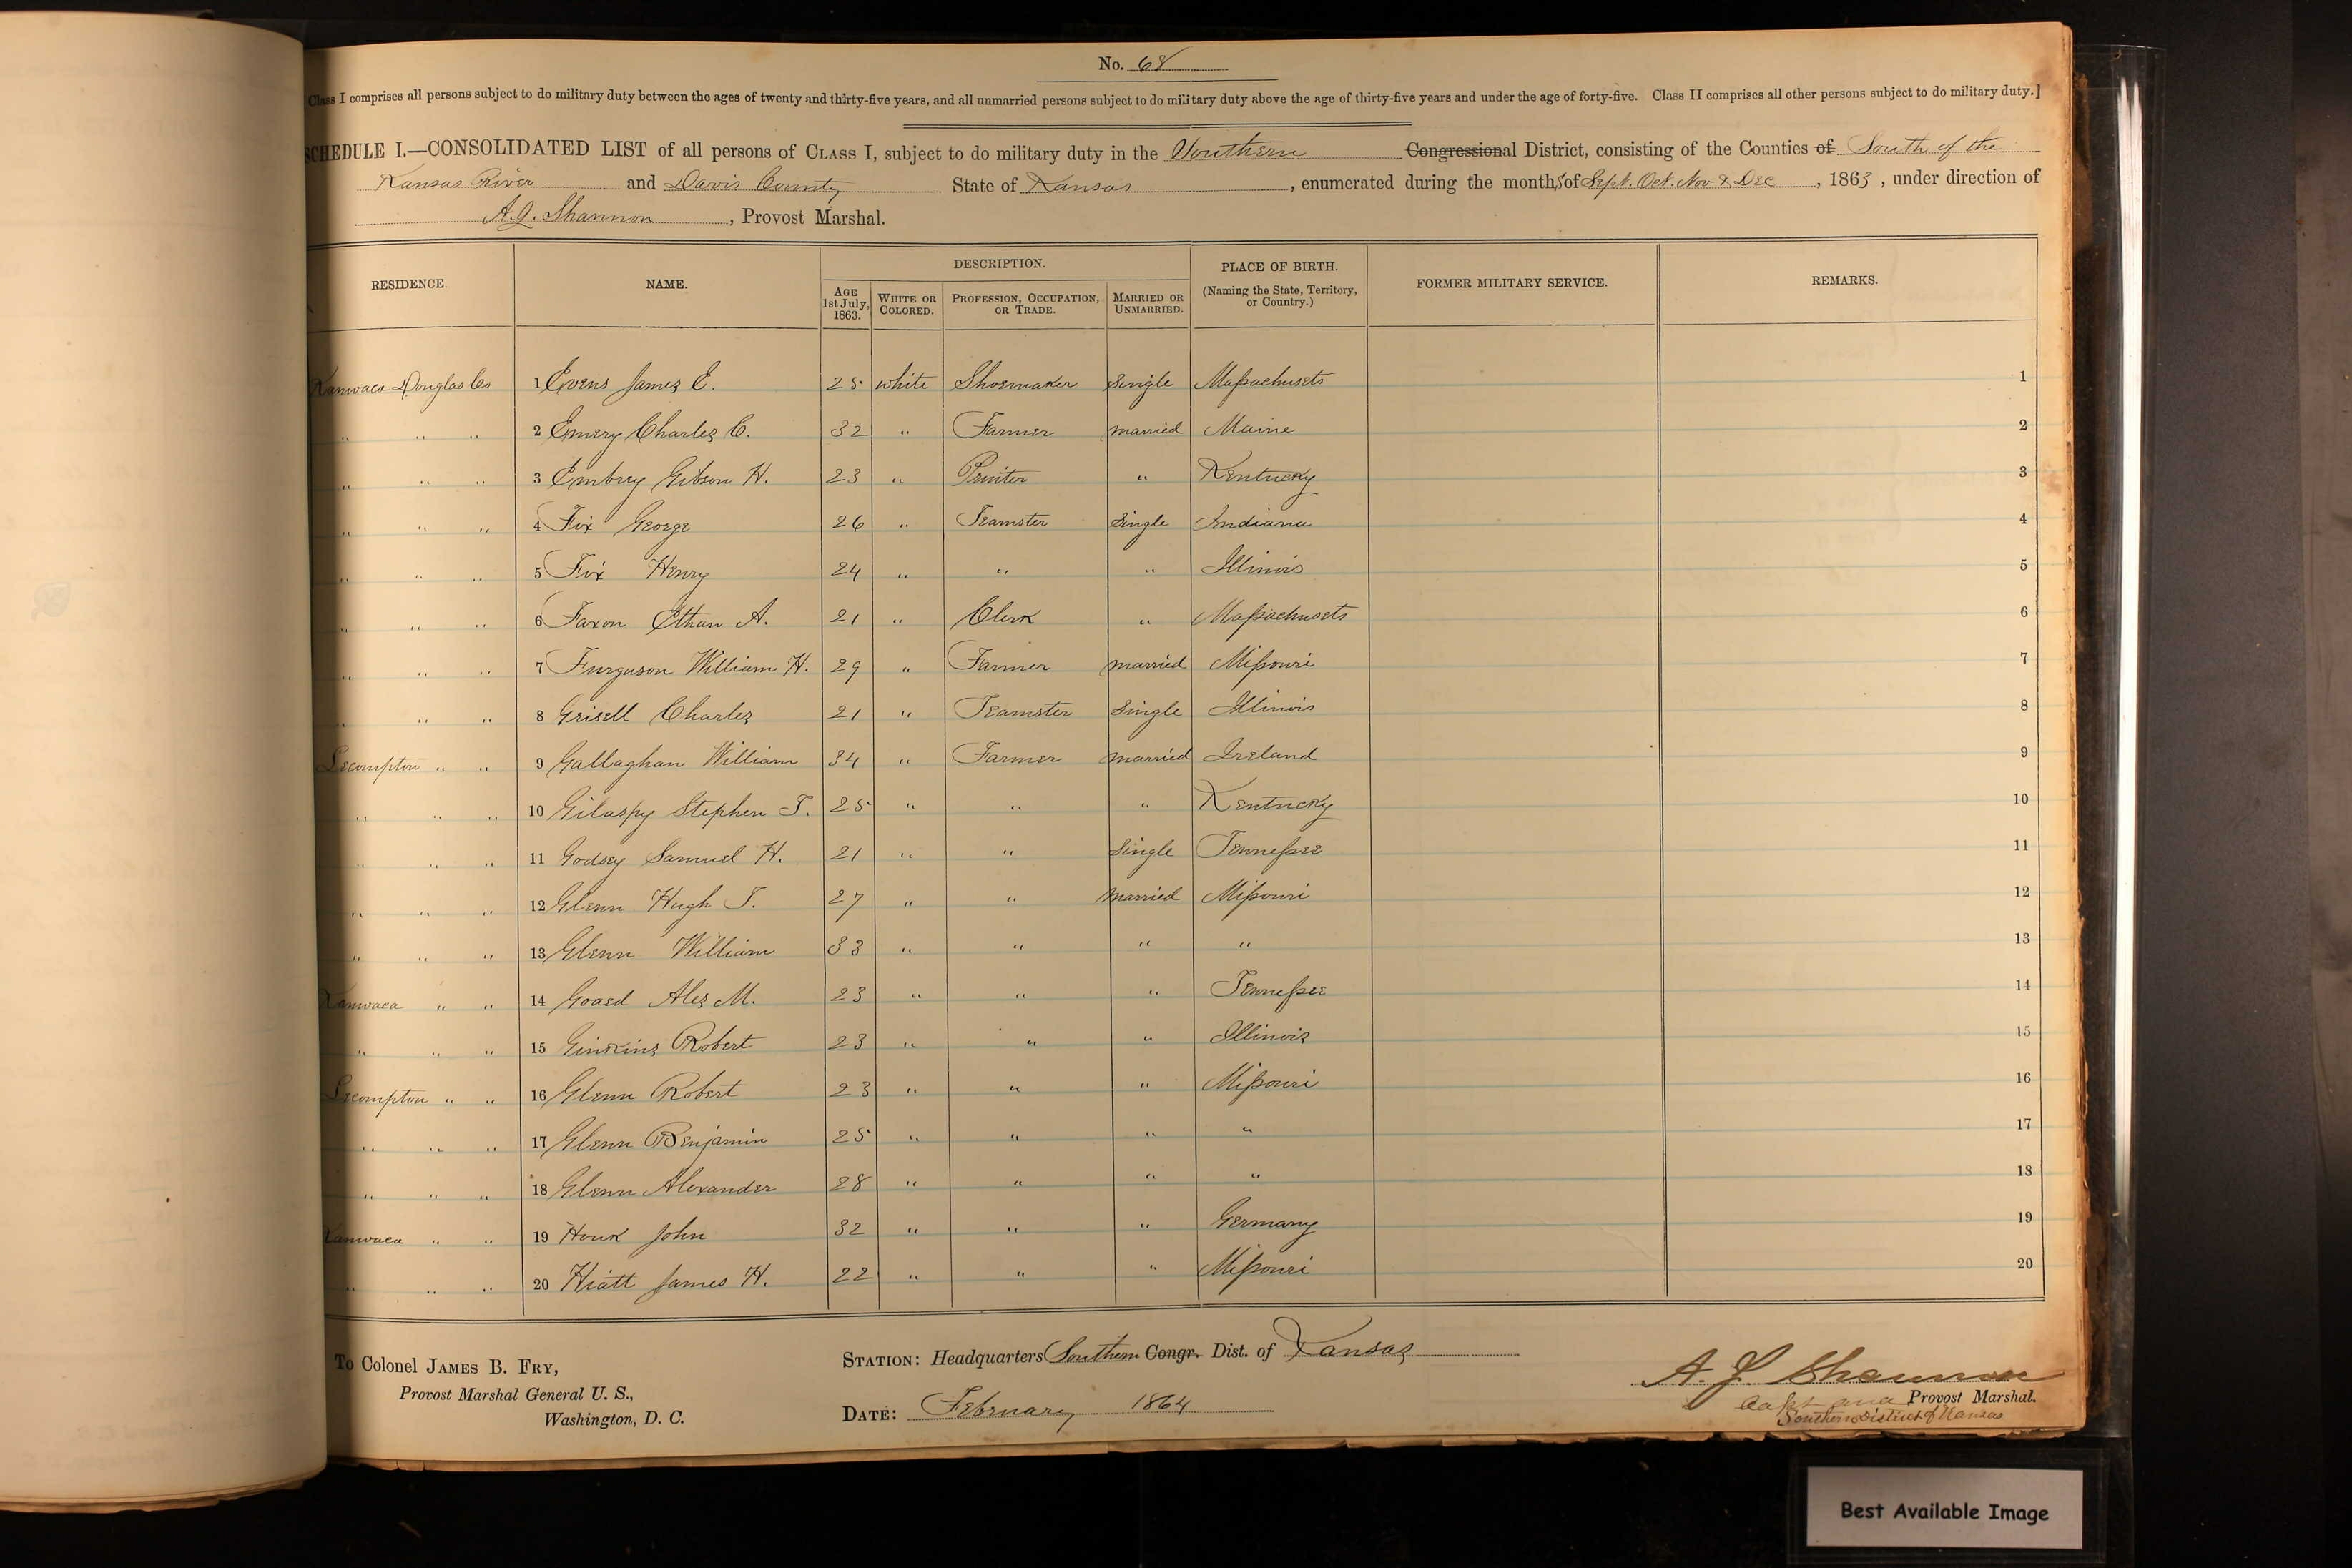 No. 68
Class I comprises all persons subject to do military duty between the ages of twenty and thirty-five years, and all unmarried persons subject to do military duty above the age of thirty-five years and under the age of forty-five. Class II comprises all other persons subject to do military duty.]
SCHEDULE I.—CONSOLIDATED LIST of all persons of CLASS I, subject to do military duty in the Southern Congressional District, consisting of the Counties of South of the
Kansas River and Davis County State of Kansas, enumerated during the months of Sept. Oct. Nov & Dec, 1863, under direction of
A. J. Shannon, Provost Marshal.
RESIDENCE. NAME. DESCRIPTION. PLACE OF BIRTH. (Naming the State, Territory, or Country.) FORMER MILITARY SERVICE. REMARKS.
AGE 1st July, 1863. WHITE OR COLORED. PROFESSION, OCCUPATION, OR TRADE. MARRIED OR UNMARRIED.
Kanwaca Douglas Co 1 Evens James E. 25 white Shoemaker Single Massachusets 1
" " " 2 Emery Charles C. 32 " Farmer married Maine 2
" " " 3 Embrey Gibson H. 23 " Printer " Kentucky 3
" " " 4 Fix George 26 " Teamster Single Indiana 4
" " " 5 Fix Henry 24 " " " Illinois 5
" " " 6 Faxon Ethan A. 21 " Clerk " Massachusets 6
" " " 7 Furguson William H. 29 " Farmer married Missouri 7
" " " 8 Grisell Charles 21 " Teamster Single Illinois 8
Lecompton " " 9 Gallaghan William 34 " Farmer married Ireland 9
" " " 10 Gilaspy Stephen T. 25 " " " Kentucky 10
" " " 11 Godsey Samuel H. 21 " " Single Tennessee 11
" " " 12 Glenn Hugh T. 27 " " Married Missouri 12
" " " 13 Glenn William 33 " " " " 13
Kanwaca " " 14 Goard Alex M. 23 " " " Tennessee 14
" " " 15 Ginkins Robert 23 " " " Illinois 15
Lecompton " " 16 Glenn Robert 23 " " " Missouri 16
" " " 17 Glenn Benjamin 25 " " " " 17
" " " 18 Glenn Alexander 28 " " " " 18
Kanwaca " " 19 Houk John 32 " " " Germany 19
" " " 20 Hiatt James H. 22 " " " Missouri 20
To Colonel JAMES B. FRY,
Provost Marshal General U. S.,
Washington, D. C.
STATION: Headquarters Southern Congr. Dist. of Kansas
DATE: February 1864
A. J. Shannon
Capt and Provost Marshal.
Southern District of Kansas
Best Available Image